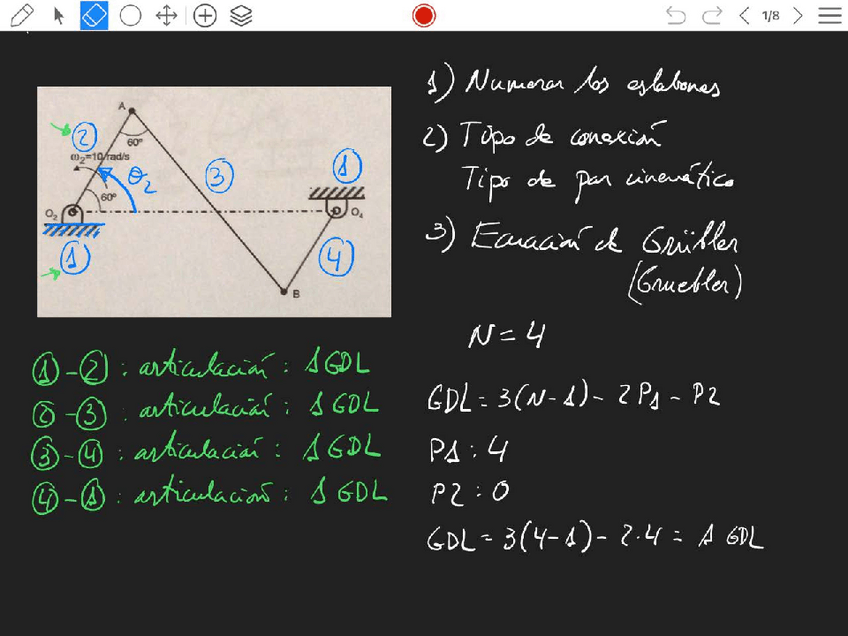 1/8
A
60°
②
ω₂=10 rad/s
θ₂
③
①
60°
O₂
O₄
①
④
B
①-②: articulación: 1 GDL
②-③: articulación: 1 GDL
③-④: articulación: 1 GDL
④-①: articulación: 1 GDL
1) Numerar los eslabones
2) Tipo de conexión
Tipo de par cinemático
3) Ecuación de Grübler
(Gruebler)
N = 4
GDL = 3(N-1) - 2P1 - P2
P1: 4
P2: 0
GDL = 3(4-1) - 2·4 = 1 GDL